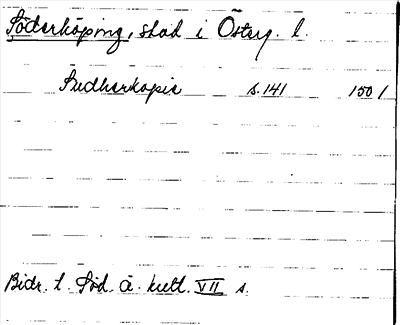 Söderköping, stad i Österg. l.
Sudherkopie s. 141 1501
Bidr. t. Söd. ä. kult. VII s.